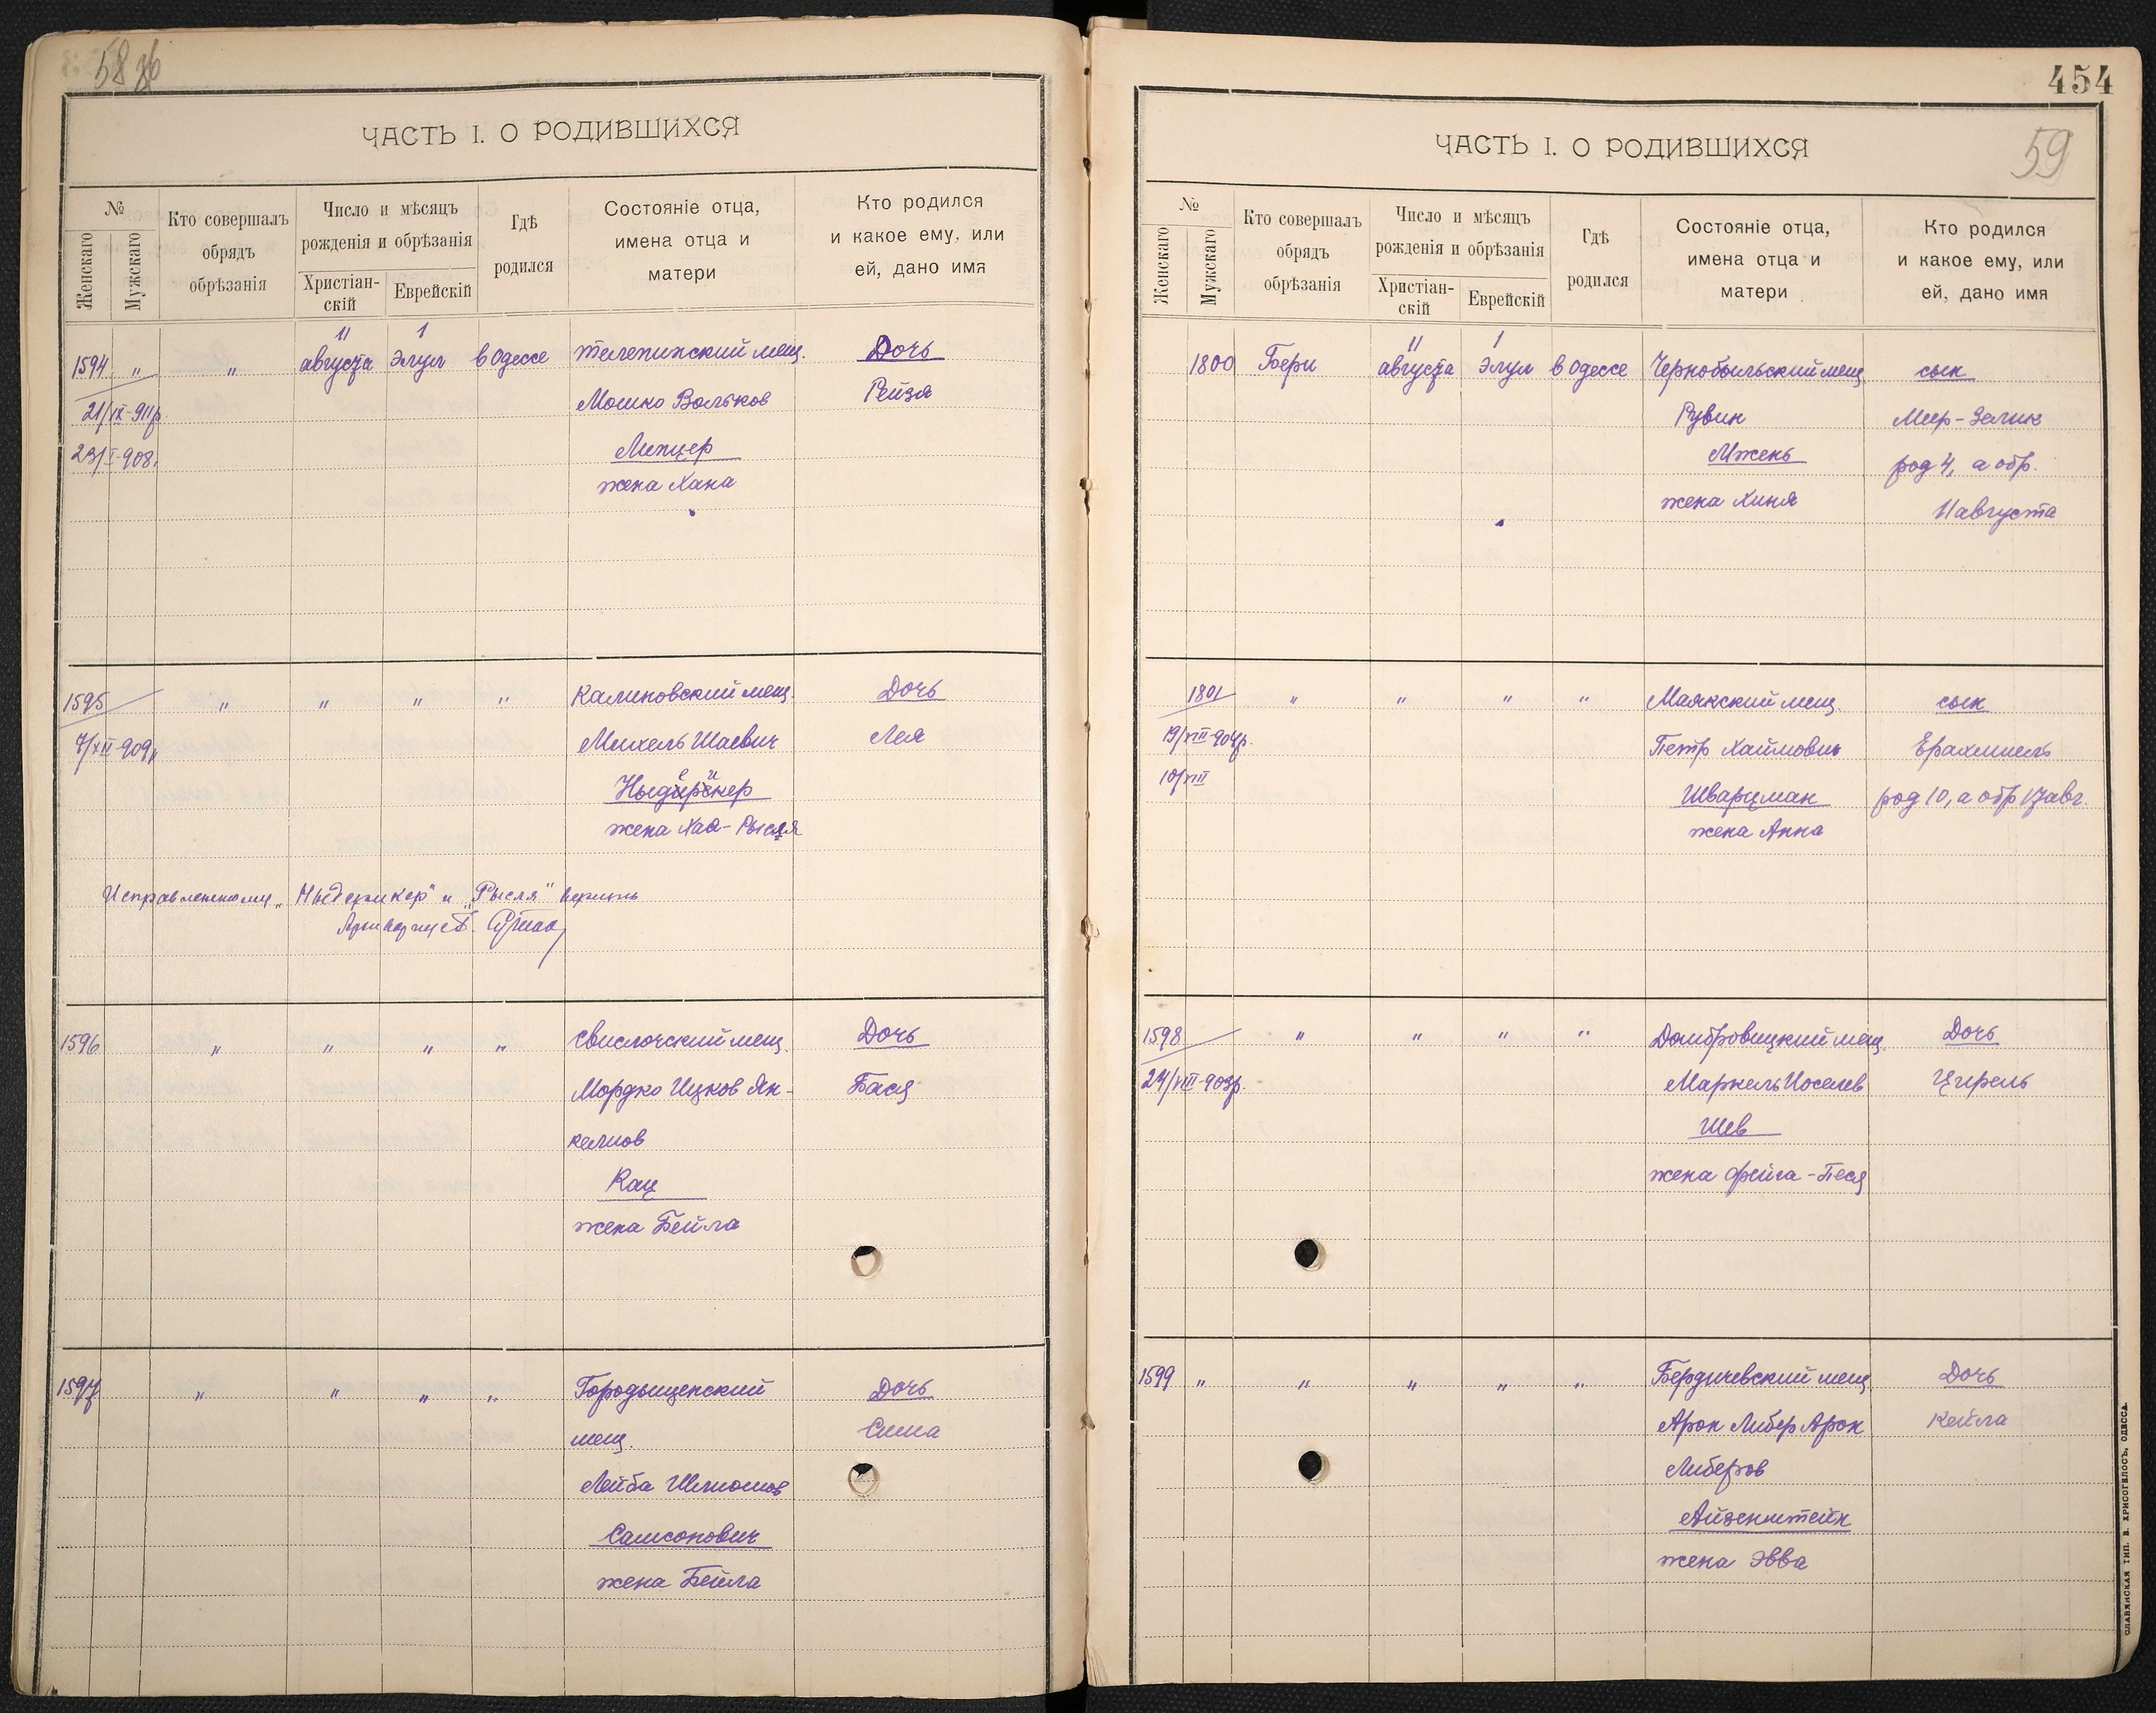 58 об
ЧАСТЬ I. О РОДИВШИХСЯ
№
Женскаго
Мужскаго
Кто совершалъ
обрядъ
обрѣзанія
Число и мѣсяцъ
рожденія и обрѣзанія
Христіан-
скій
Еврейскій
Гдѣ
родился
Состояніе отца,
имена отца и
матери
Кто родился
и какое ему, или
ей, дано имя
11 1
1594 " " августа Элул в Одессе Телепинский мещ. Дочь
21/IX-911р. Мошко Вольков Рейзя
23/I-908. Мехцер
жена Хана
1595 " " " " Калиновский мещ. Дочь
7/XII-909 Михель Шаевич Лея
Нидерикер
жена Хая-Рысля
Исправленному „Нидерикер" и „Рысля" верить
1596 " " " " Свислочский мещ. Дочь
Мордко Ицков Ян- Бася
келиов
Кац
жена Бейла
1597 " " " " Городыщенский Дочь
мещ. Сима
Лейба Шлиомов
Самсонович
жена Бейла
454
59
ЧАСТЬ I. О РОДИВШИХСЯ
№
Женскаго
Мужскаго
Кто совершалъ
обрядъ
обрѣзанія
Число и мѣсяцъ
рожденія и обрѣзанія
Христіан-
скій
Еврейскій
Гдѣ
родился
Состояніе отца,
имена отца и
матери
Кто родился
и какое ему, или
ей, дано имя
11 1
1800 Бери августа Элул в Одессе Чернобыльский мещ. сын
Рувин Меер-Зелик
Мжень род 4, а обр.
жена Хиня 11 августа
1801 " " " " Маякский мещ. сын
19/VIII-904р. Петр Хаймович Ерахмиель
10/VIII Шварцман род 10, а обр 17 авг.
жена Анна
1598 " " " " Домбровицкий мещ. Дочь
24/VIII-903р. Маркель Иоселев Цирель
Шев
жена Фейга-Песя
1599 " " " " " Бердичевский мещ Дочь
Арон Либер Арон Кейла
Либеров
Айзенштейн
жена Эвва
СЛАВЯНСКАЯ ТИП. В. ХРИСОГЕЛОСЪ, ОДЕССА.